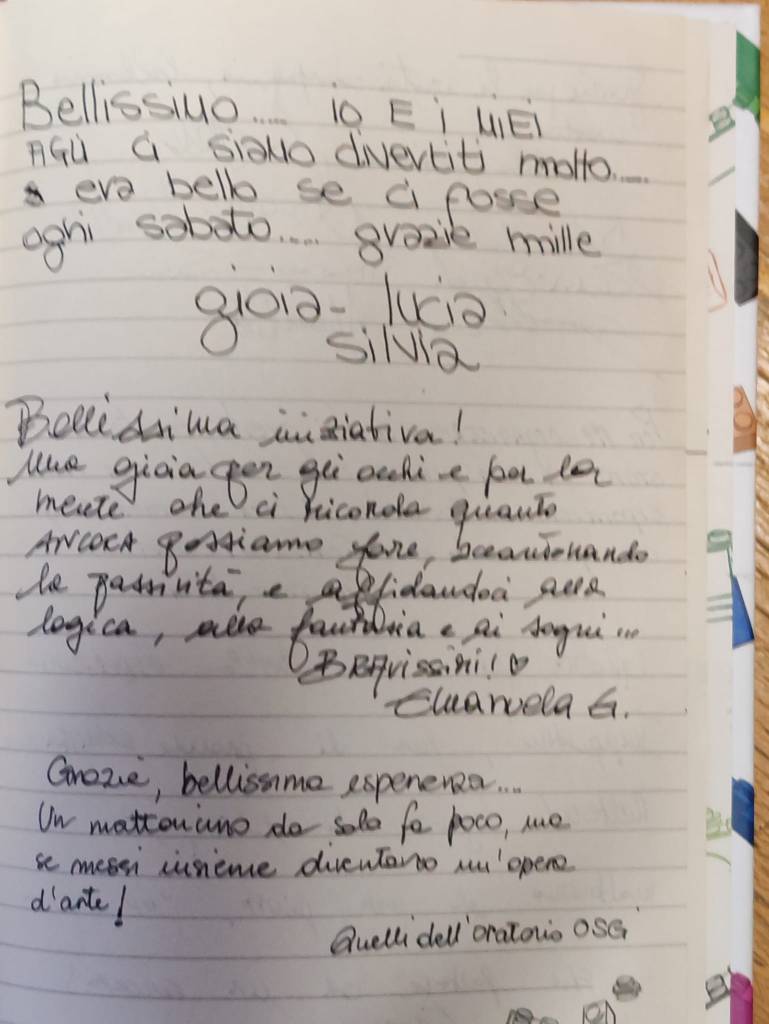 Bellissimo..... io E i MiEi
AGLI ci siamo divertiti molto.....
era bello se ci fosse
ogni sabato..... grazie mille
gioia - lucia
silvia
Bellissima iniziativa!
Una gioia per gli occhi e per la
mente che ci ricorda quanto
ANCORA possiamo fare, accantonando
la passività, e affidandoci alla
logica, alla fantasia e ai sogni...
BRAvissimi! ♡
Emanuela G.
Grazie, bellissima esperienza...
Un mattoncino da solo fa poco, ma
se messi insieme diventano un'opera
d'arte!
Quelli dell'oratorio OSG